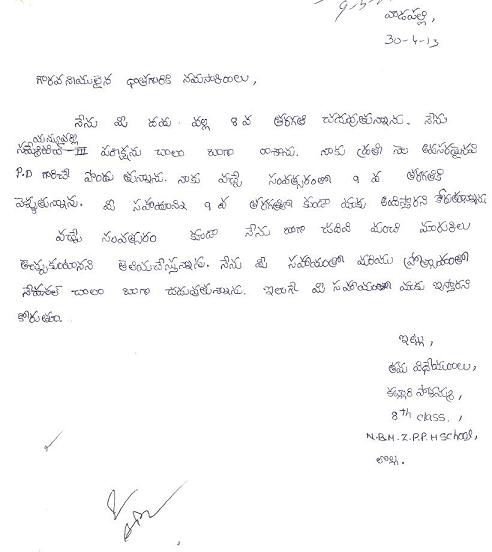 వాడపల్లి,
30-4-13
గౌరవనీయులైన దాతగారికి నమస్కారములు,
నేను మీ దయ వల్ల 8 వ తరగతి చదువుతున్నాను. నేను
పరీక్షను చాలా బాగా రాశాను. నాకు ప్రతి నెల
P.D గారిచే పొందుతున్నాను. నాకు వచ్చే సంవత్సరంలో 9 వ తరగతికి
వెళ్ళుతున్నాను. మీ సహాయాన్ని 9 వ తరగతిలో కూడా మాకు అందిస్తారని కోరుతున్నాను
వచ్చే సంవత్సరం కూడా నేను బాగా చదివి మంచి మార్కులు
తెచ్చుకుంటానని తెలియచేస్తున్నాను. నేను మీ సహాయంతో మరియు ప్రోత్సాహంతో
చాలా బాగా చదువుతున్నాను. ఇలాగే మీ సహాయంను మాకు ఇస్తారని
కోరుతూ...
ఇట్లు,
తమ విధేయురాలు,
8th class.,
N.B.M.Z.P.P.H School,
లొల్ల.